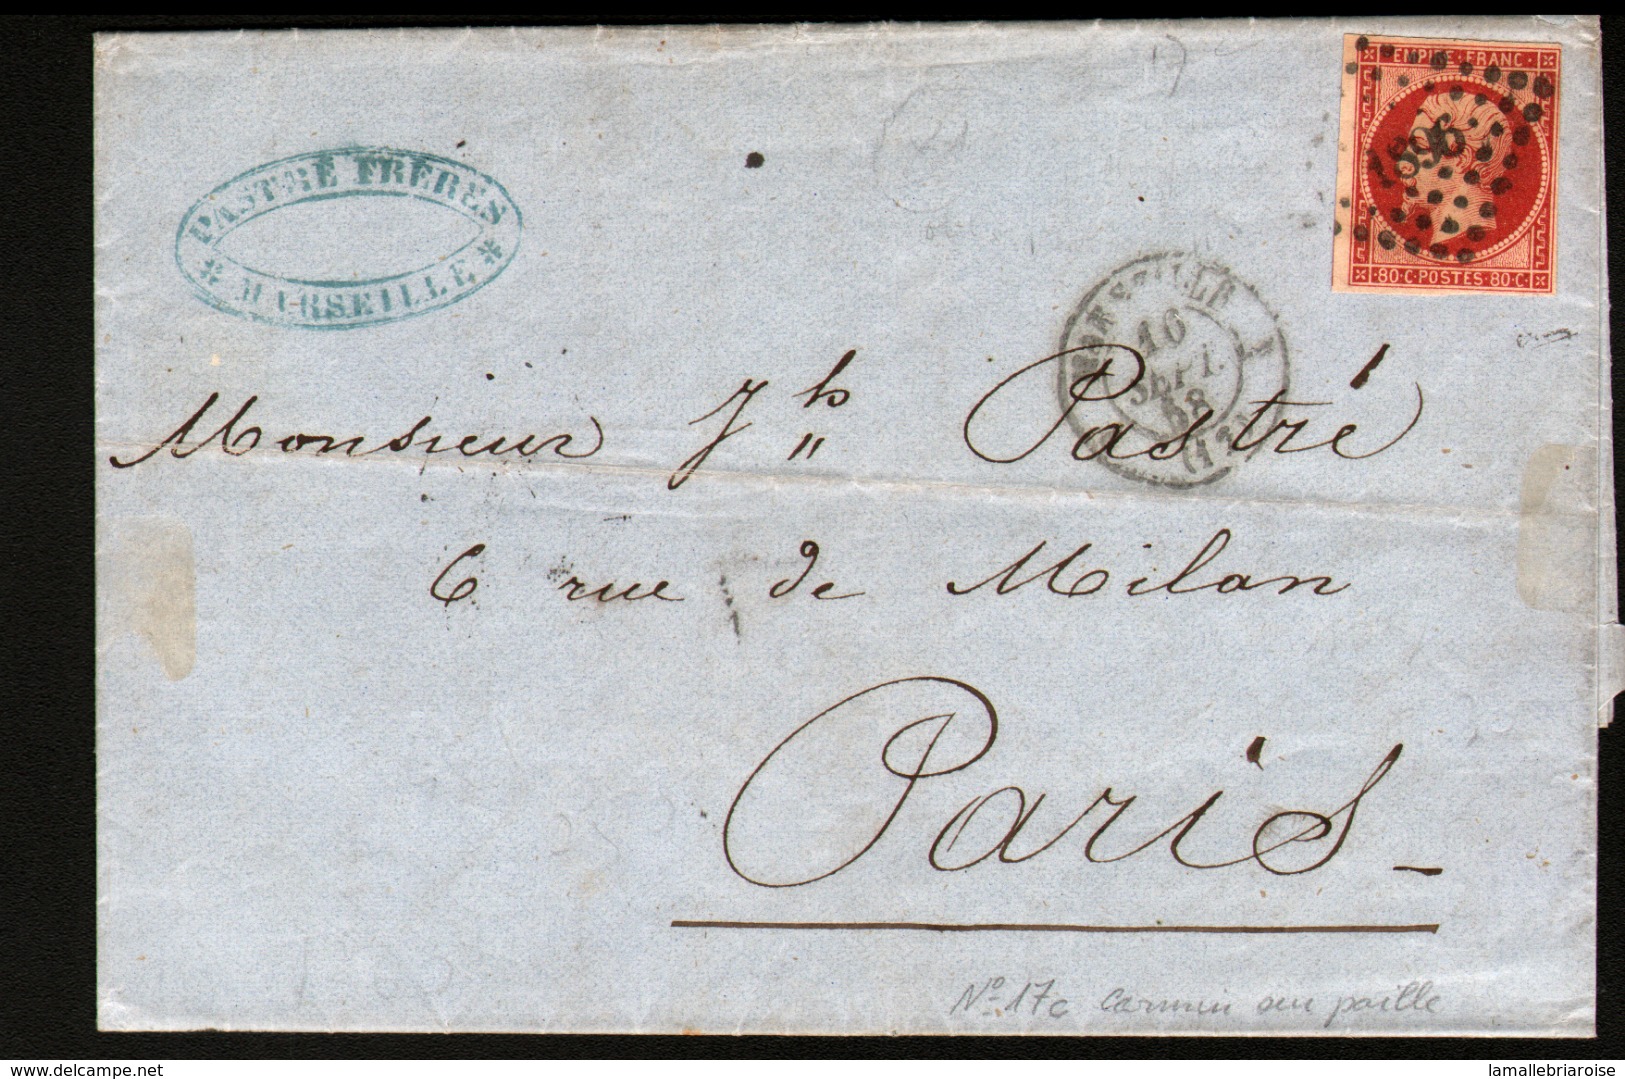 EMPIRE · FRANC ·
1896
80·C·POSTES·80·C·
PASTRÉ FRÈRES
* MARSEILLE *
MARSEILLE
16
SEPT.
58
Monsieur Jh Pastré
6 rue de Milan
Paris -
No 17c carmin sur paille
www.delcampe.net
lamallebriaroise